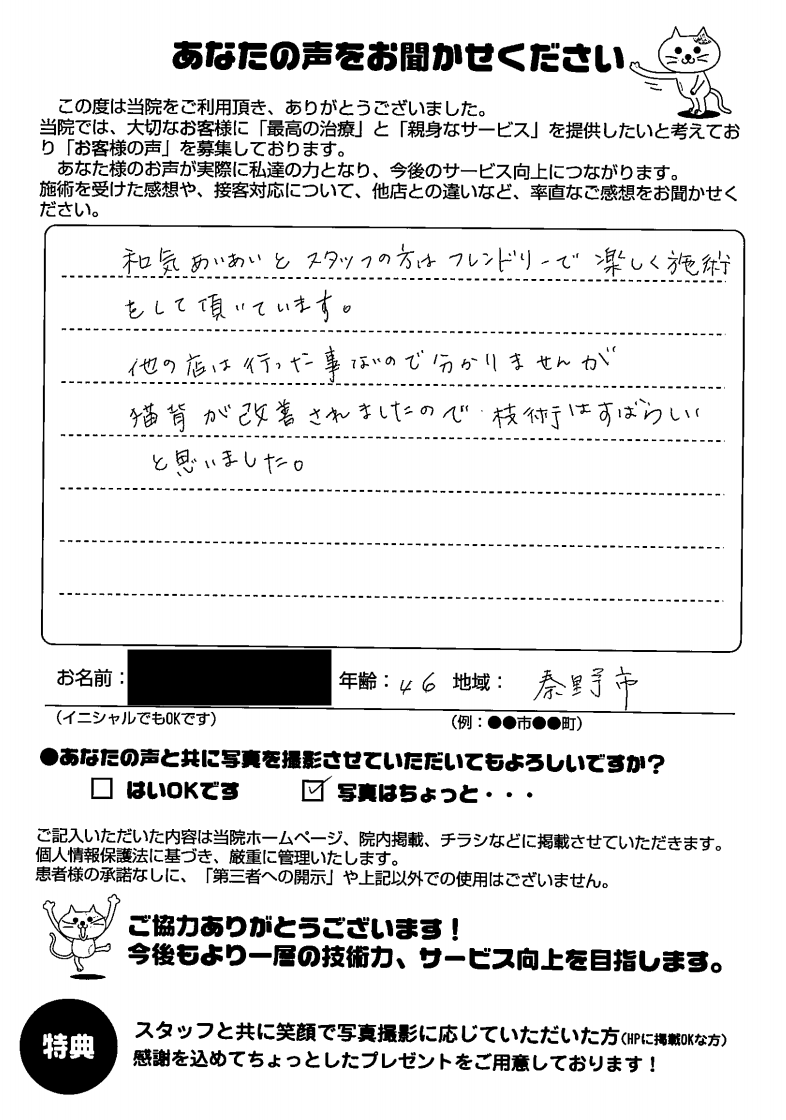 あなたの声をお聞かせください
この度は当院をご利用頂き、ありがとうございました。
当院では、大切なお客様に「最高の治療」と「親身なサービス」を提供したいと考えてお
り「お客様の声」を募集しております。
あなた様のお声が実際に私達の力となり、今後のサービス向上につながります。
施術を受けた感想や、接客対応について、他店との違いなど、率直なご感想をお聞かせく
ださい。
和気あいあいとスタッフの方はフレンドリーで楽しく施術
をして頂いています。
他の店は行った事ないので分かりませんが
猫背が改善されましたので、技術はすばらしい
と思いました。
お名前： 年齢：46 地域： 秦野市
（イニシャルでもOKです） （例：●●市●●町）
●あなたの声と共に写真を撮影させていただいてもよろしいですか？
□ はいOKです ☑ 写真はちょっと・・・
ご記入いただいた内容は当院ホームページ、院内掲載、チラシなどに掲載させていただきます。
個人情報保護法に基づき、厳重に管理いたします。
患者様の承諾なしに、「第三者への開示」や上記以外での使用はございません。
ご協力ありがとうございます！
今後もより一層の技術力、サービス向上を目指します。
特典
スタッフと共に笑顔で写真撮影に応じていただいた方(HPに掲載OKな方)
感謝を込めてちょっとしたプレゼントをご用意しております！